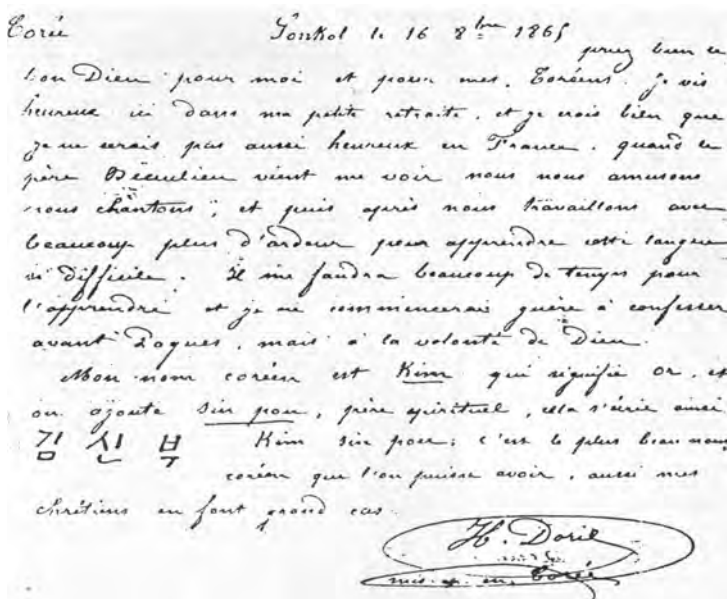 Corée Sonkol le 16 8bre 1865
priez bien le
bon Dieu pour moi et pour mes Coréens. Je vis
heureux ici dans ma petite retraite, et je crois bien que
je ne serais pas aussi heureux en France. quand le
père Beaulieu vient me voir nous nous amusons
nous chantons, et puis après nous travaillons avec
beaucoup plus d'ardeur pour apprendre cette langue
si difficile. Il me faudra beaucoup de temps pour
l'apprendre et je ne commencerai guère à confesser
avant Paques, mais à la volonté de Dieu.
Mon nom coréen est Kim qui signifie or, et
on ajoute sin pou, père spirituel, cela s'écrit ainsi
김 신 부 Kim sin pou; c'est le plus beau nom
coréen que l'on puisse avoir, aussi mes
chrétiens en font grand cas.
H. Dorie
mis. ap. en Corée